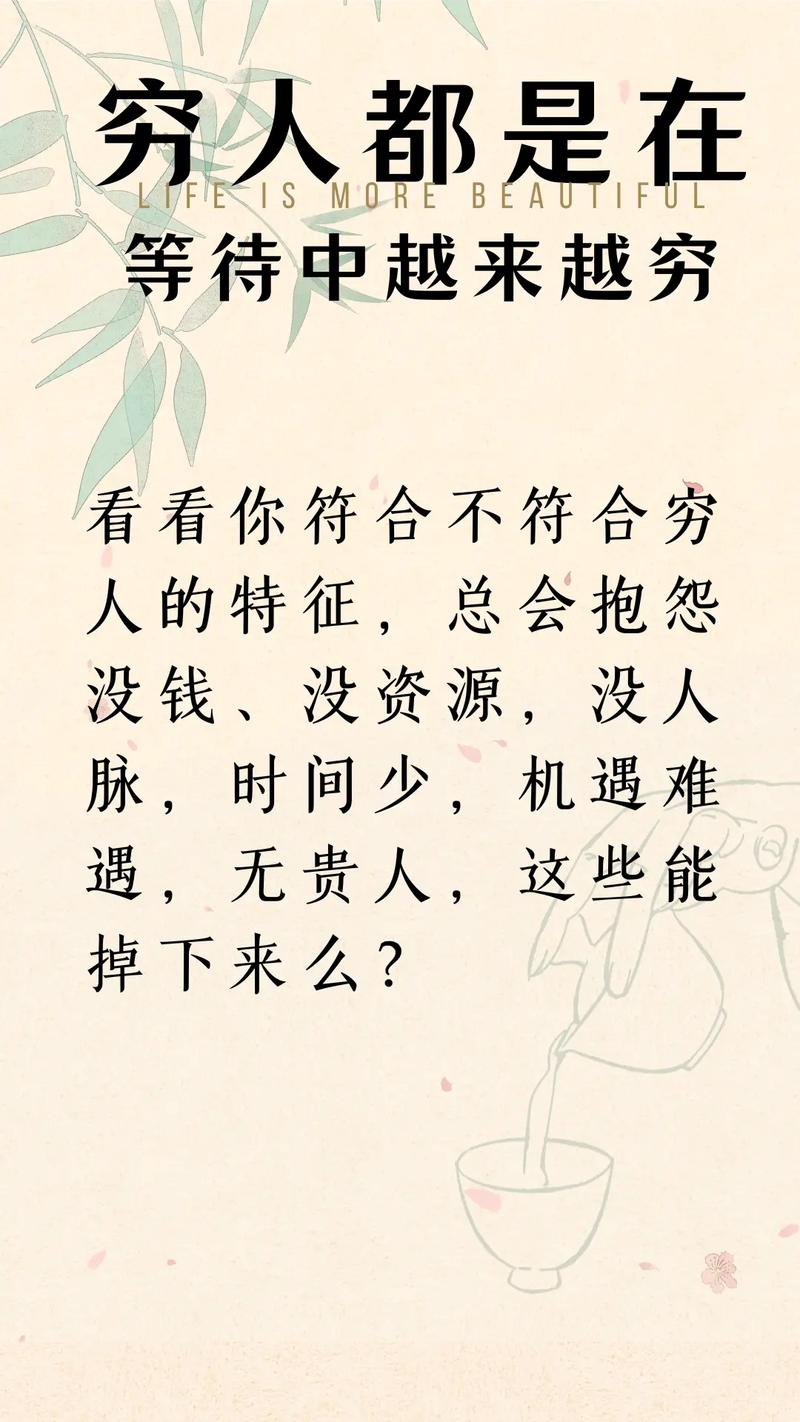 穷人都是在
LIFE IS MORE BEAUTIFUL
等待中越来越穷
看看你符合不符合穷
人的特征，总会抱怨
没钱、没资源，没人
脉，时间少，机遇难
遇，无贵人，这些能
掉下来么？